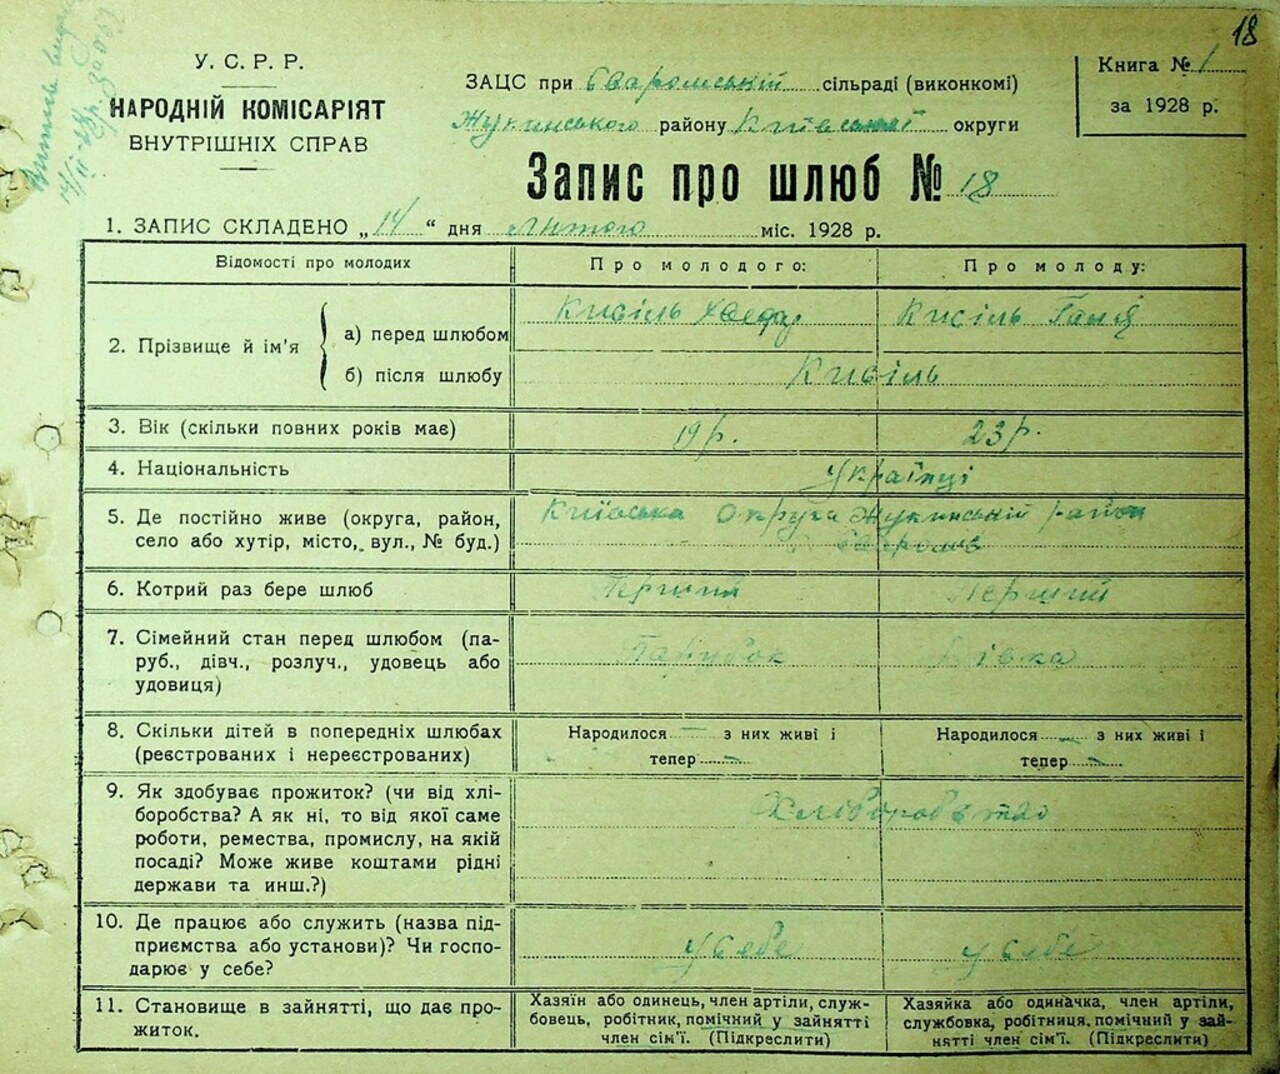 18
У. С. Р. Р.
НАРОДНІЙ КОМІСАРІЯТ
ВНУТРІШНІХ СПРАВ
ЗАЦС при Сваромській сільраді (виконкомі)
Жукинського району Київської округи
Книга № 1
за 1928 р.
Запис про шлюб № 18
1. ЗАПИС СКЛАДЕНО „14“ дня Лютого міс. 1928 р.
Відомості про молодих
Про молодого:
Про молоду:
2. Прізвище й ім'я
а) перед шлюбом
Кисіль Хведір
Кисіль Ганя
б) після шлюбу
Кисіль
3. Вік (скільки повних років має)
19 р.
23 р.
4. Національність
Українці
5. Де постійно живе (округа, район,
село або хутір, місто, вул., № буд.)
Київська Округа Жукинській район
Сваромє
6. Котрий раз бере шлюб
Перший
Перший
7. Сімейний стан перед шлюбом (па-
руб., дівч., розлуч., удовець або
удовиця)
Парубок
Дівка
8. Скільки дітей в попередніх шлюбах
(реєстрованих і нереєстрованих)
Народилося — з них живі і
тепер —
Народилося — з них живі і
тепер —
9. Як здобуває прожиток? (чи від хлі-
боробства? А як ні, то від якої саме
роботи, ремества, промислу, на якій
посаді? Може живе коштами рідні
держави та инш.?)
Хліборобство
10. Де працює або служить (назва під-
приємства або установи)? Чи госпо-
дарює у себе?
у себе
у себе
11. Становище в зайнятті, що дає про-
житок.
Хазяїн або одинець, член артіли, служ-
бовець, робітник, помічний у зайнятті
член сім'ї. (Підкреслити)
Хазяйка або одиначка, член артіли,
службовка, робітниця, помічний у зай-
нятті член сім'ї. (Підкреслити)